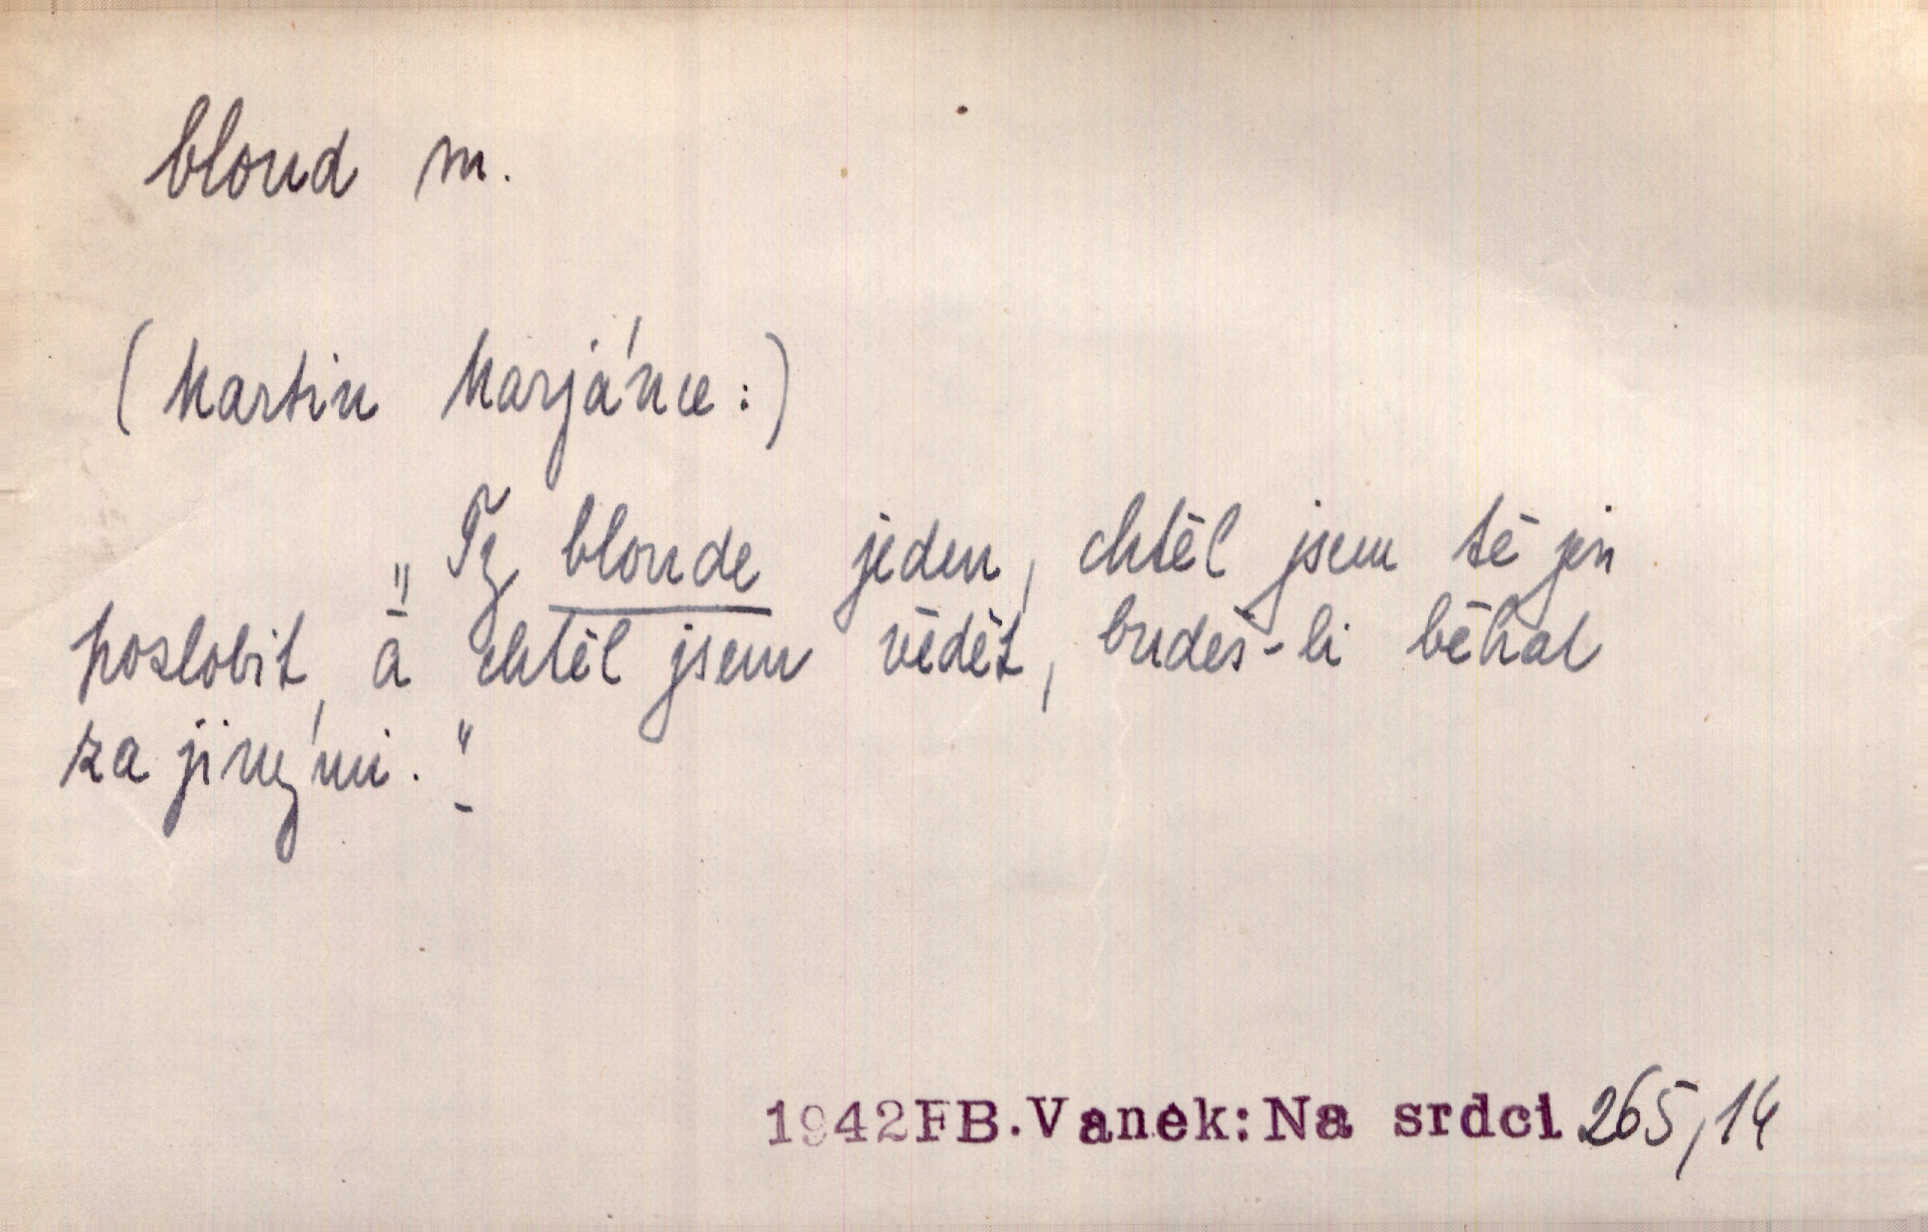 bloud m.
(Martin Marjánce:)
„Ty bloude jeden, chtěl jsem tě jen
poslobit, a chtěl jsem vědět, budeš-li běhat
za jinými."
1942FB.Vanek: Na srdci 265,14